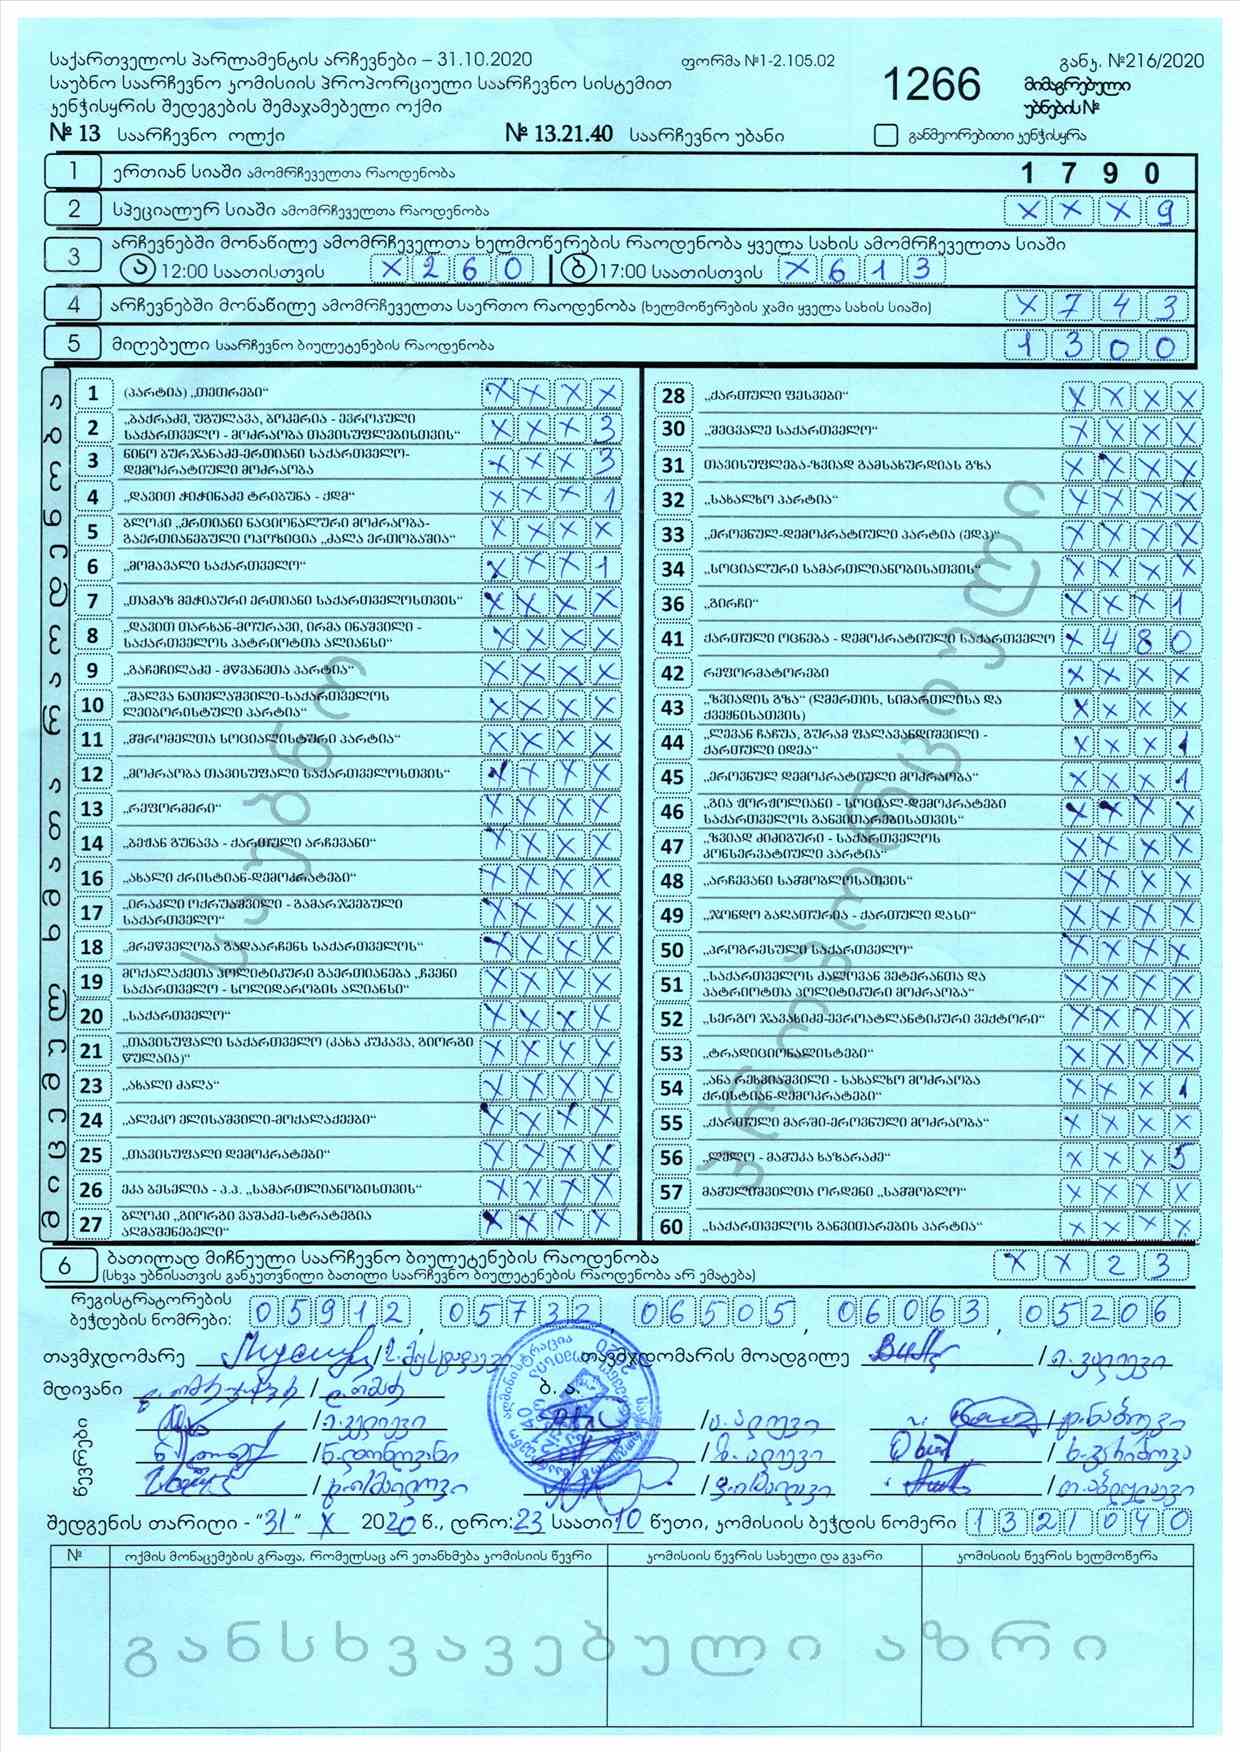 საქართველოს პარლამენტის არჩევნები – 31.10.2020
ფორმა №1-2.105.02
განკ. №216/2020
საუბნო საარჩევნო კომისიის პროპორციული საარჩევნო სისტემით
კენჭისყრის შედეგების შემაჯამებელი ოქმი
1266
მიმაგრებული
უბნების №
№ 13 საარჩევნო ოლქი
№ 13.21.40 საარჩევნო უბანი
განმეორებითი კენჭისყრა
1 ერთიან სიაში ამომრჩეველთა რაოდენობა 1 7 9 0
2 სპეციალურ სიაში ამომრჩეველთა რაოდენობა X X X 9
3 არჩევნებში მონაწილე ამომრჩეველთა ხელმოწერების რაოდენობა ყველა სახის ამომრჩეველთა სიაში
ა 12:00 საათისთვის X 2 6 0 ბ 17:00 საათისთვის X 6 1 3
4 არჩევნებში მონაწილე ამომრჩეველთა საერთო რაოდენობა (ხელმოწერების ჯამი ყველა სახის სიაში) X 7 4 3
5 მიღებული საარჩევნო ბიულეტენების რაოდენობა 1 3 0 0
მიცემულ ხმათა რაოდენობა
1 (პარტია) „თეთრები“ X X X X
2 „ბაქრაძე, უგულავა, ბოკერია - ევროპული
საქართველო - მოძრაობა თავისუფლებისთვის“ X X X 3
3 ნინო ბურჯანაძე-ერთიანი საქართველო-
დემოკრატიული მოძრაობა X X X 3
4 „დავით ჭიჭინაძე ტრიბუნა - ქდმ“ X X X 1
5 ბლოკი „ერთიანი ნაციონალური მოძრაობა-
გაერთიანებული ოპოზიცია „ძალა ერთობაშია“ X X X X
6 „მომავალი საქართველო“ X X X 1
7 „თამაზ მეჭიაური ერთიანი საქართველოსთვის“ X X X X
8 „დავით თარხან-მოურავი, ირმა ინაშვილი -
საქართველოს პატრიოტთა ალიანსი“ X X X X
9 „გაჩეჩილაძე - მწვანეთა პარტია“ X X X X
10 „შალვა ნათელაშვილი-საქართველოს
ლეიბორისტული პარტია“ X X X X
11 „მშრომელთა სოციალისტური პარტია“ X X X X
12 „მოძრაობა თავისუფალი საქართველოსთვის“ X X X X
13 „რეფორმერი“ X X X X
14 „ბეჟან გუნავა - ქართული არჩევანი“ X X X X
16 „ახალი ქრისტიან-დემოკრატები“ X X X X
17 „ირაკლი ოქრუაშვილი - გამარჯვებული
საქართველო“ X X X X
18 „მრეწველობა გადაარჩენს საქართველოს“ X X X X
19 მოქალაქეთა პოლიტიკური გაერთიანება „ჩვენი
საქართველო - სოლიდარობის ალიანსი“ X X X X
20 „საქართველო“ X X X X
21 „თავისუფალი საქართველო (კახა კუკავა, გიორგი
წულაია)“ X X X X
23 „ახალი ძალა“ X X X X
24 „ალეკო ელისაშვილი-მოქალაქეები“ X X X X
25 „თავისუფალი დემოკრატები“ X X X X
26 ეკა ბესელია - პ.პ. „სამართლიანობისთვის“ X X X X
27 ბლოკი „გიორგი ვაშაძე-სტრატეგია
აღმაშენებელი“ X X X X
28 „ქართული ფესვები“ X X X X
30 „შეცვალე საქართველო“ X X X X
31 თავისუფლება-ზვიად გამსახურდიას გზა X X X X
32 „სახალხო პარტია“ X X X X
33 „ეროვნულ-დემოკრატიული პარტია (ედპ)“ X X X X
34 „სოციალური სამართლიანობისათვის“ X X X X
36 „გირჩი“ X X X 1
41 ქართული ოცნება - დემოკრატიული საქართველო X 4 8 0
42 რეფორმატორები X X X X
43 „ზვიადის გზა“ (ღმერთის, სიმართლისა და
ქვეყნისათვის) X X X X
44 „ლევან ჩაჩუა, გურამ ფალავანდიშვილი -
ქართული იდეა“ X X X 1
45 „ეროვნულ დემოკრატიული მოძრაობა“ X X X 1
46 „გია ჟორჟოლიანი - სოციალ-დემოკრატები
საქართველოს განვითარებისათვის“ X X X X
47 „ზვიად ძიძიგური - საქართველოს
კონსერვატიული პარტია“ X X X X
48 „არჩევანი სამშობლოსათვის“ X X X X
49 „ჯონდო ბაღათურია - ქართული დასი“ X X X X
50 „პროგრესული საქართველო“ X X X X
51 „საქართველოს ძალოვან ვეტერანთა და
პატრიოტთა პოლიტიკური მოძრაობა“ X X X X
52 „სერგო ჯავახიძე-ევროატლანტიკური ვექტორი“ X X X X
53 „ტრადიციონალისტები“ X X X X
54 „ანა რეხვიაშვილი - სახალხო მოძრაობა
ქრისტიან-დემოკრატები“ X X X 1
55 „ქართული მარში-ეროვნული მოძრაობა“ X X X X
56 „ლელო - მამუკა ხაზარაძე“ X X X 5
57 მამულიშვილთა ორდენი „სამშობლო“ X X X X
60 „საქართველოს განვითარების პარტია“ X X X X
საუბნო
პროპორციული
6 ბათილად მიჩნეული საარჩევნო ბიულეტენების რაოდენობა X X 2 3
(სხვა უბნისათვის განკუთვნილი ბათილი საარჩევნო ბიულეტენების რაოდენობა არ ემატება)
რეგისტრატორების
ბეჭდების ნომრები: 05912, 05732, 06505, 06063, 05206
თავმჯდომარე
თავმჯდომარის მოადგილე
მდივანი
ბ. ა.
წევრები
შედგენის თარიღი - “31” X 2020 წ., დრო: 23 საათი 10 წუთი, კომისიის ბეჭდის ნომერი 1321040
№ ოქმის მონაცემების გრაფა, რომელსაც არ ეთანხმება კომისიის წევრი
კომისიის წევრის სახელი და გვარი
კომისიის წევრის ხელმოწერა
განსხვავებული აზრი